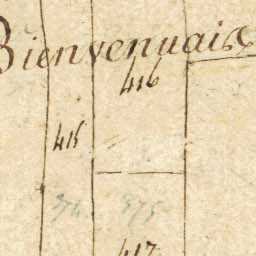 Bienvenuais
416
415
375
417